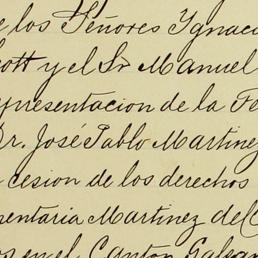 e los Señores Ygnaci
cott y el Sr Manuel
epresentacion de la Te
Dr. José Pablo Martinez
a cesion de los derechos
mentaria Martinez del C
os en el Canton Galea